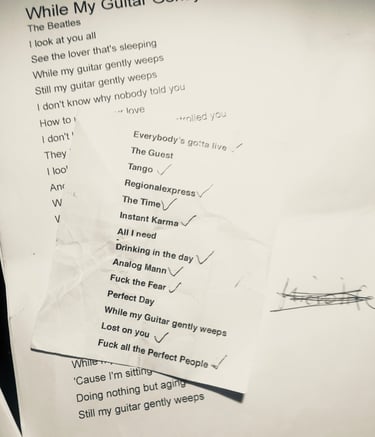 While My Guitar Gently
The Beatles
I look at you all
See the lover that's sleeping
While my guitar gently weeps
Still my guitar gently weeps
I don't know why nobody told you
How to
love
you
I don't
They
I loo
W
Everybody's gotta live
The Guest
Tango
Regionalexpress
The Time
Instant Karma
All I need
Drinking in the day
Analog Mann
Fuck the Fear
Perfect Day
While my Guitar gently weeps
Lost on you
Fuck all the Perfect People
While
'Cause I'm sitting
Doing nothing but aging
Still my guitar gently weeps